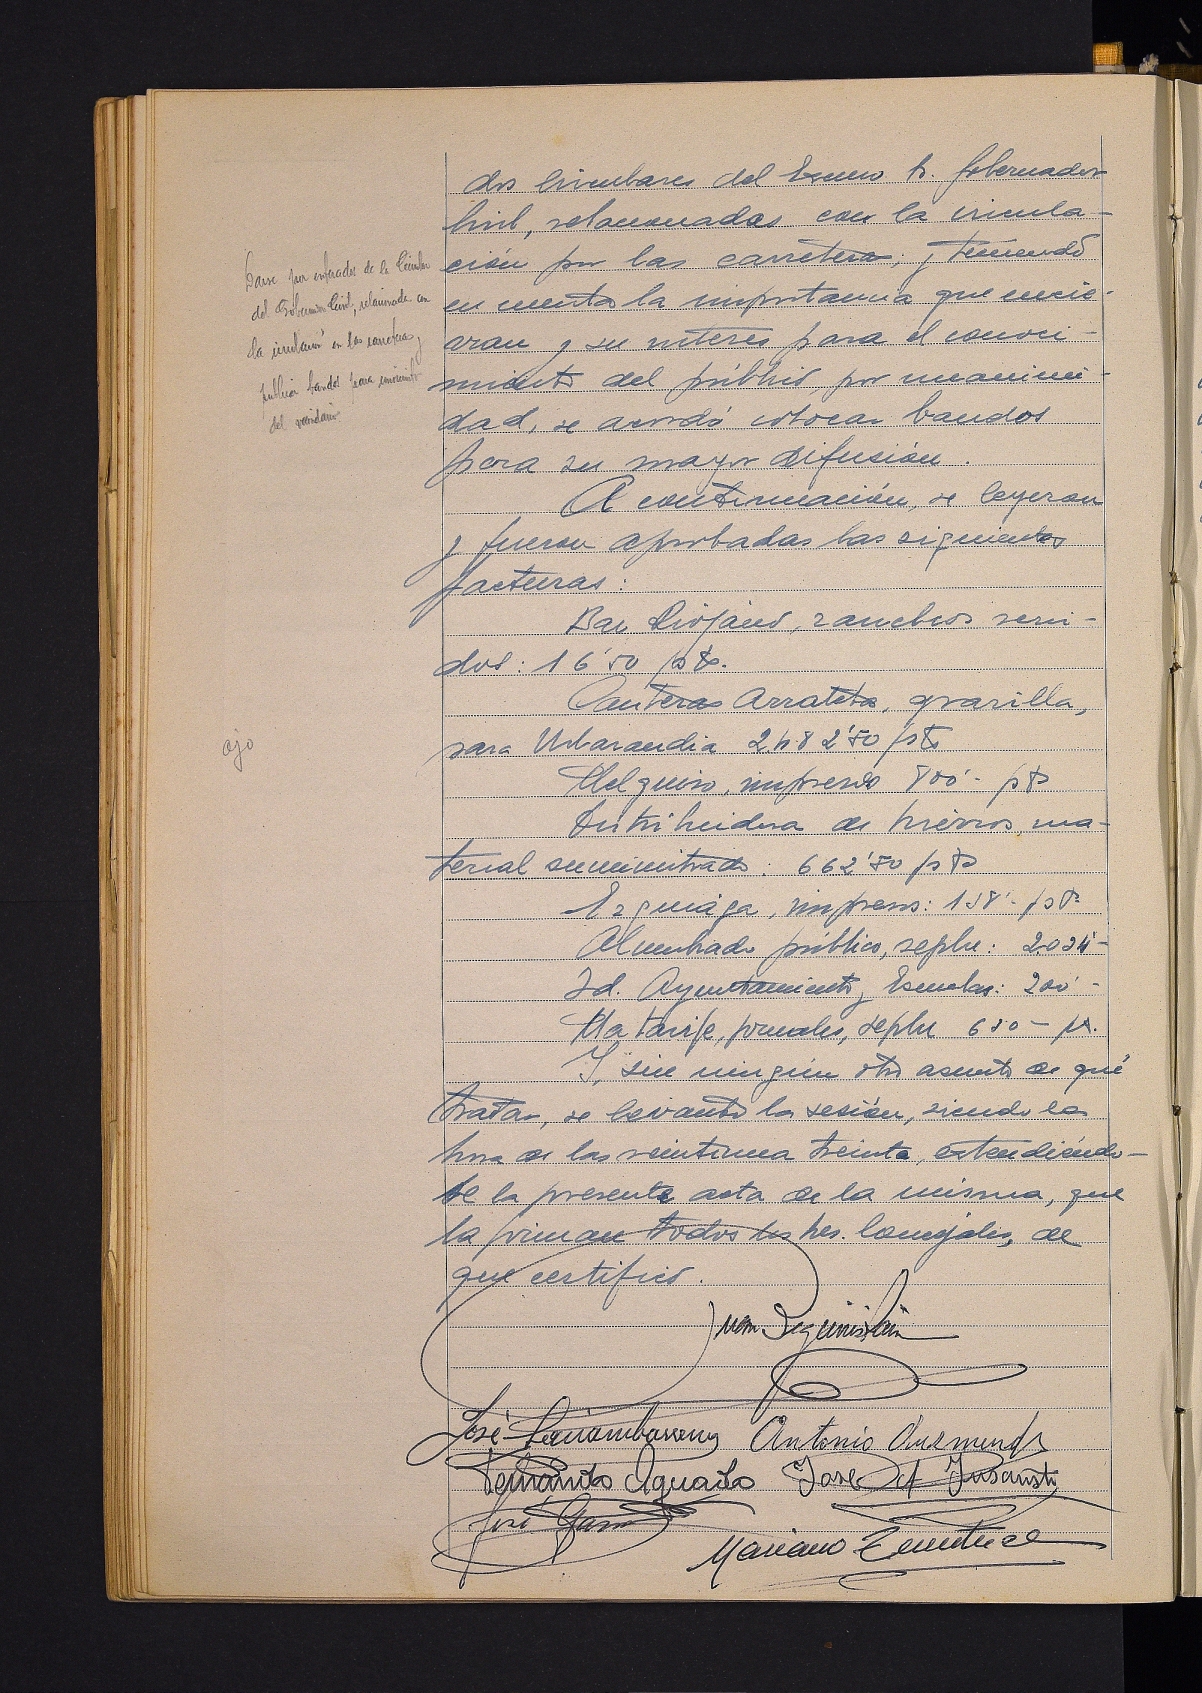 dos circulares del Excmo Sr. Gobernador
Civil, relacionadas con la circula-
ción por las carreteras; y teniendo
en cuenta la importancia que
y su interés para el conoci-
miento del público, por unanimi-
dad, se acordó colocar bandos
para su mayor difusión.
A continuación, se leyeron
y fueron aprobadas las siguientes
facturas:
Bar Riojano, ranchos servi-
dos: 16'50 pts.
Canteras Arrateta, gravilla,
para Urbarandia pts
impresos pts
Distribuidora de hierros ma-
terial suministrado: 662'50 pts
Ezquiaga, impresos: pts
Alumbrado público, sepbre:
Id. Ayuntamiento y Escuelas: 200'-
Matarife, jornales, sepbre pts.
Y, sin ningún otro asunto de qué
tratar, se levantó la sesión, siendo la
hora de las veintiuna treinta, extendiéndo-
se la presente acta de la misma, que
la firman todos los Sres. Concejales, de
que certifico.
Darse por enterados de la Circular
del Gobierno Civil, relacionada con
la circulación en las carreteras y
publicar bandos para conocimiento
del vecindario
ojo
Juan
José
Antonio
Fernando Aguado
José
José
Mariano